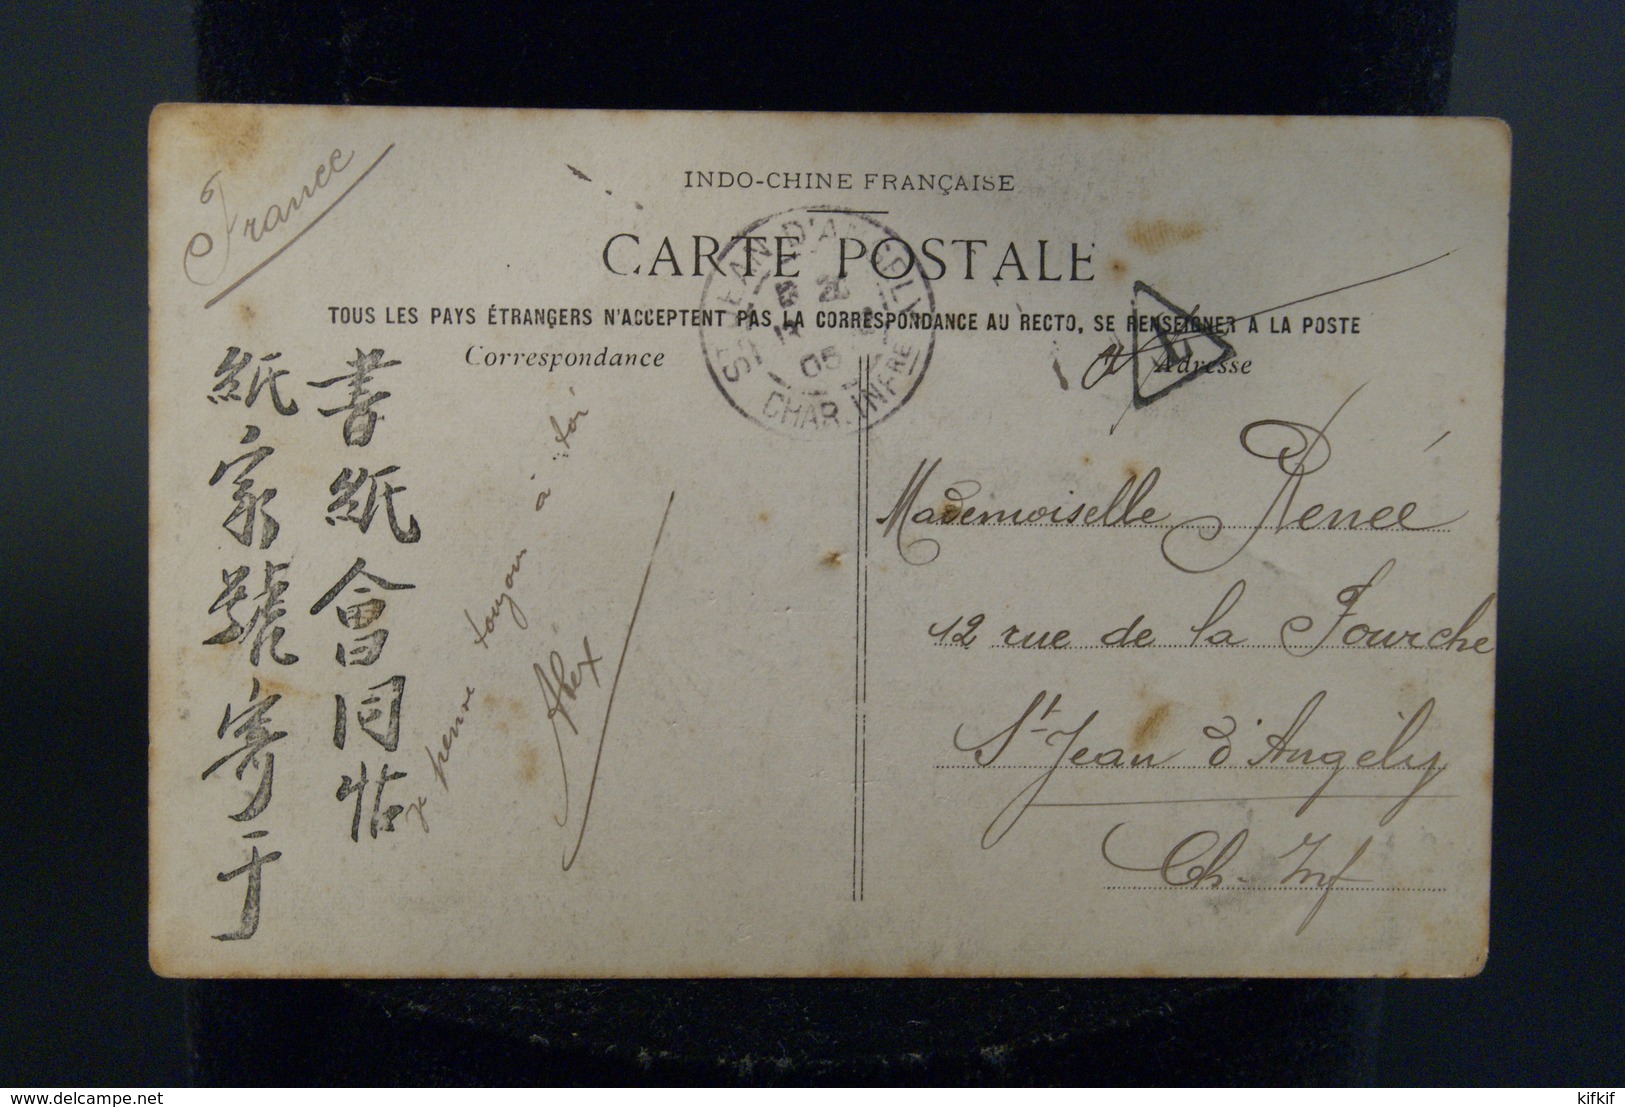 France
INDO-CHINE FRANÇAISE
CARTE POSTALE
TOUS LES PAYS ÉTRANGERS N'ACCEPTENT PAS LA CORRESPONDANCE AU RECTO, SE RENSEIGNER A LA POSTE
Correspondance
Adresse
ST JEAN D'ANGELY
05
CHAR. INFRE
書紙會同帖
紙家號寄于
pense toujour à toi
Alex
Mademoiselle Renée
12 rue de la Fourche
St Jean d'Angély
Ch. Inf
delcampe.net
kifkif